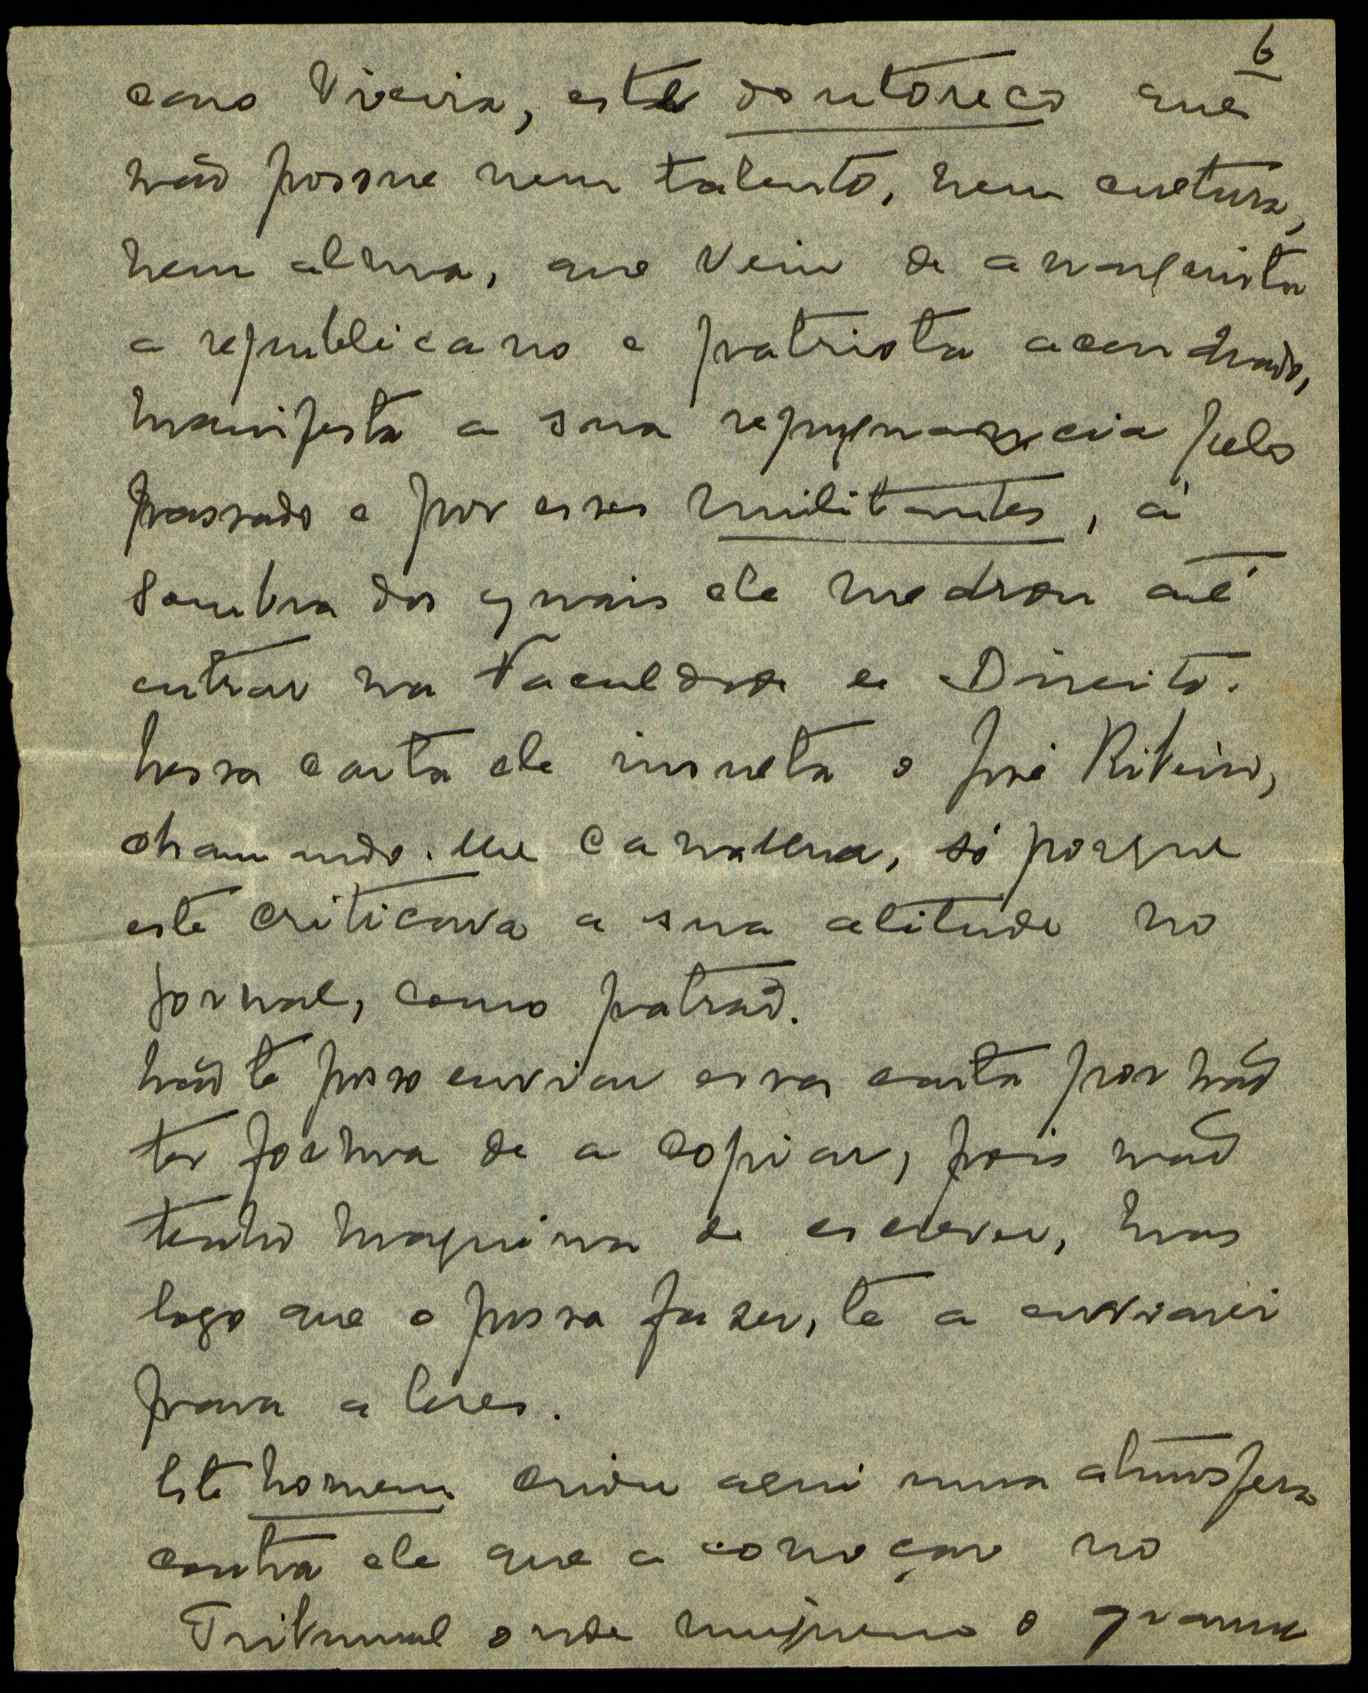 6
caso Vieira, este doutoreco que
não possue nem talento, nem cultura,
nem alma, que veiu de anarquista
a republicano e patriota acendrado,
manifesta a sua repugnancia pelo
passado e por esses militantes, á
sombra dos quais ele medrou até
entrar na Faculdade de Direito.
Nessa carta ele insulta o José Ribeiro,
chamando-lhe canalha, só porque
este criticava a sua atitude no
jornal, como patrão.
Não te posso enviar essa carta por não
ter forma de a copiar, pois não
tenho maquina de escrever, mas
logo que o possa fazer, te a enviarei
para a leres.
Este homem criou aqui uma atmosfera
contra ele que a começar no
Tribunal onde ninguem o